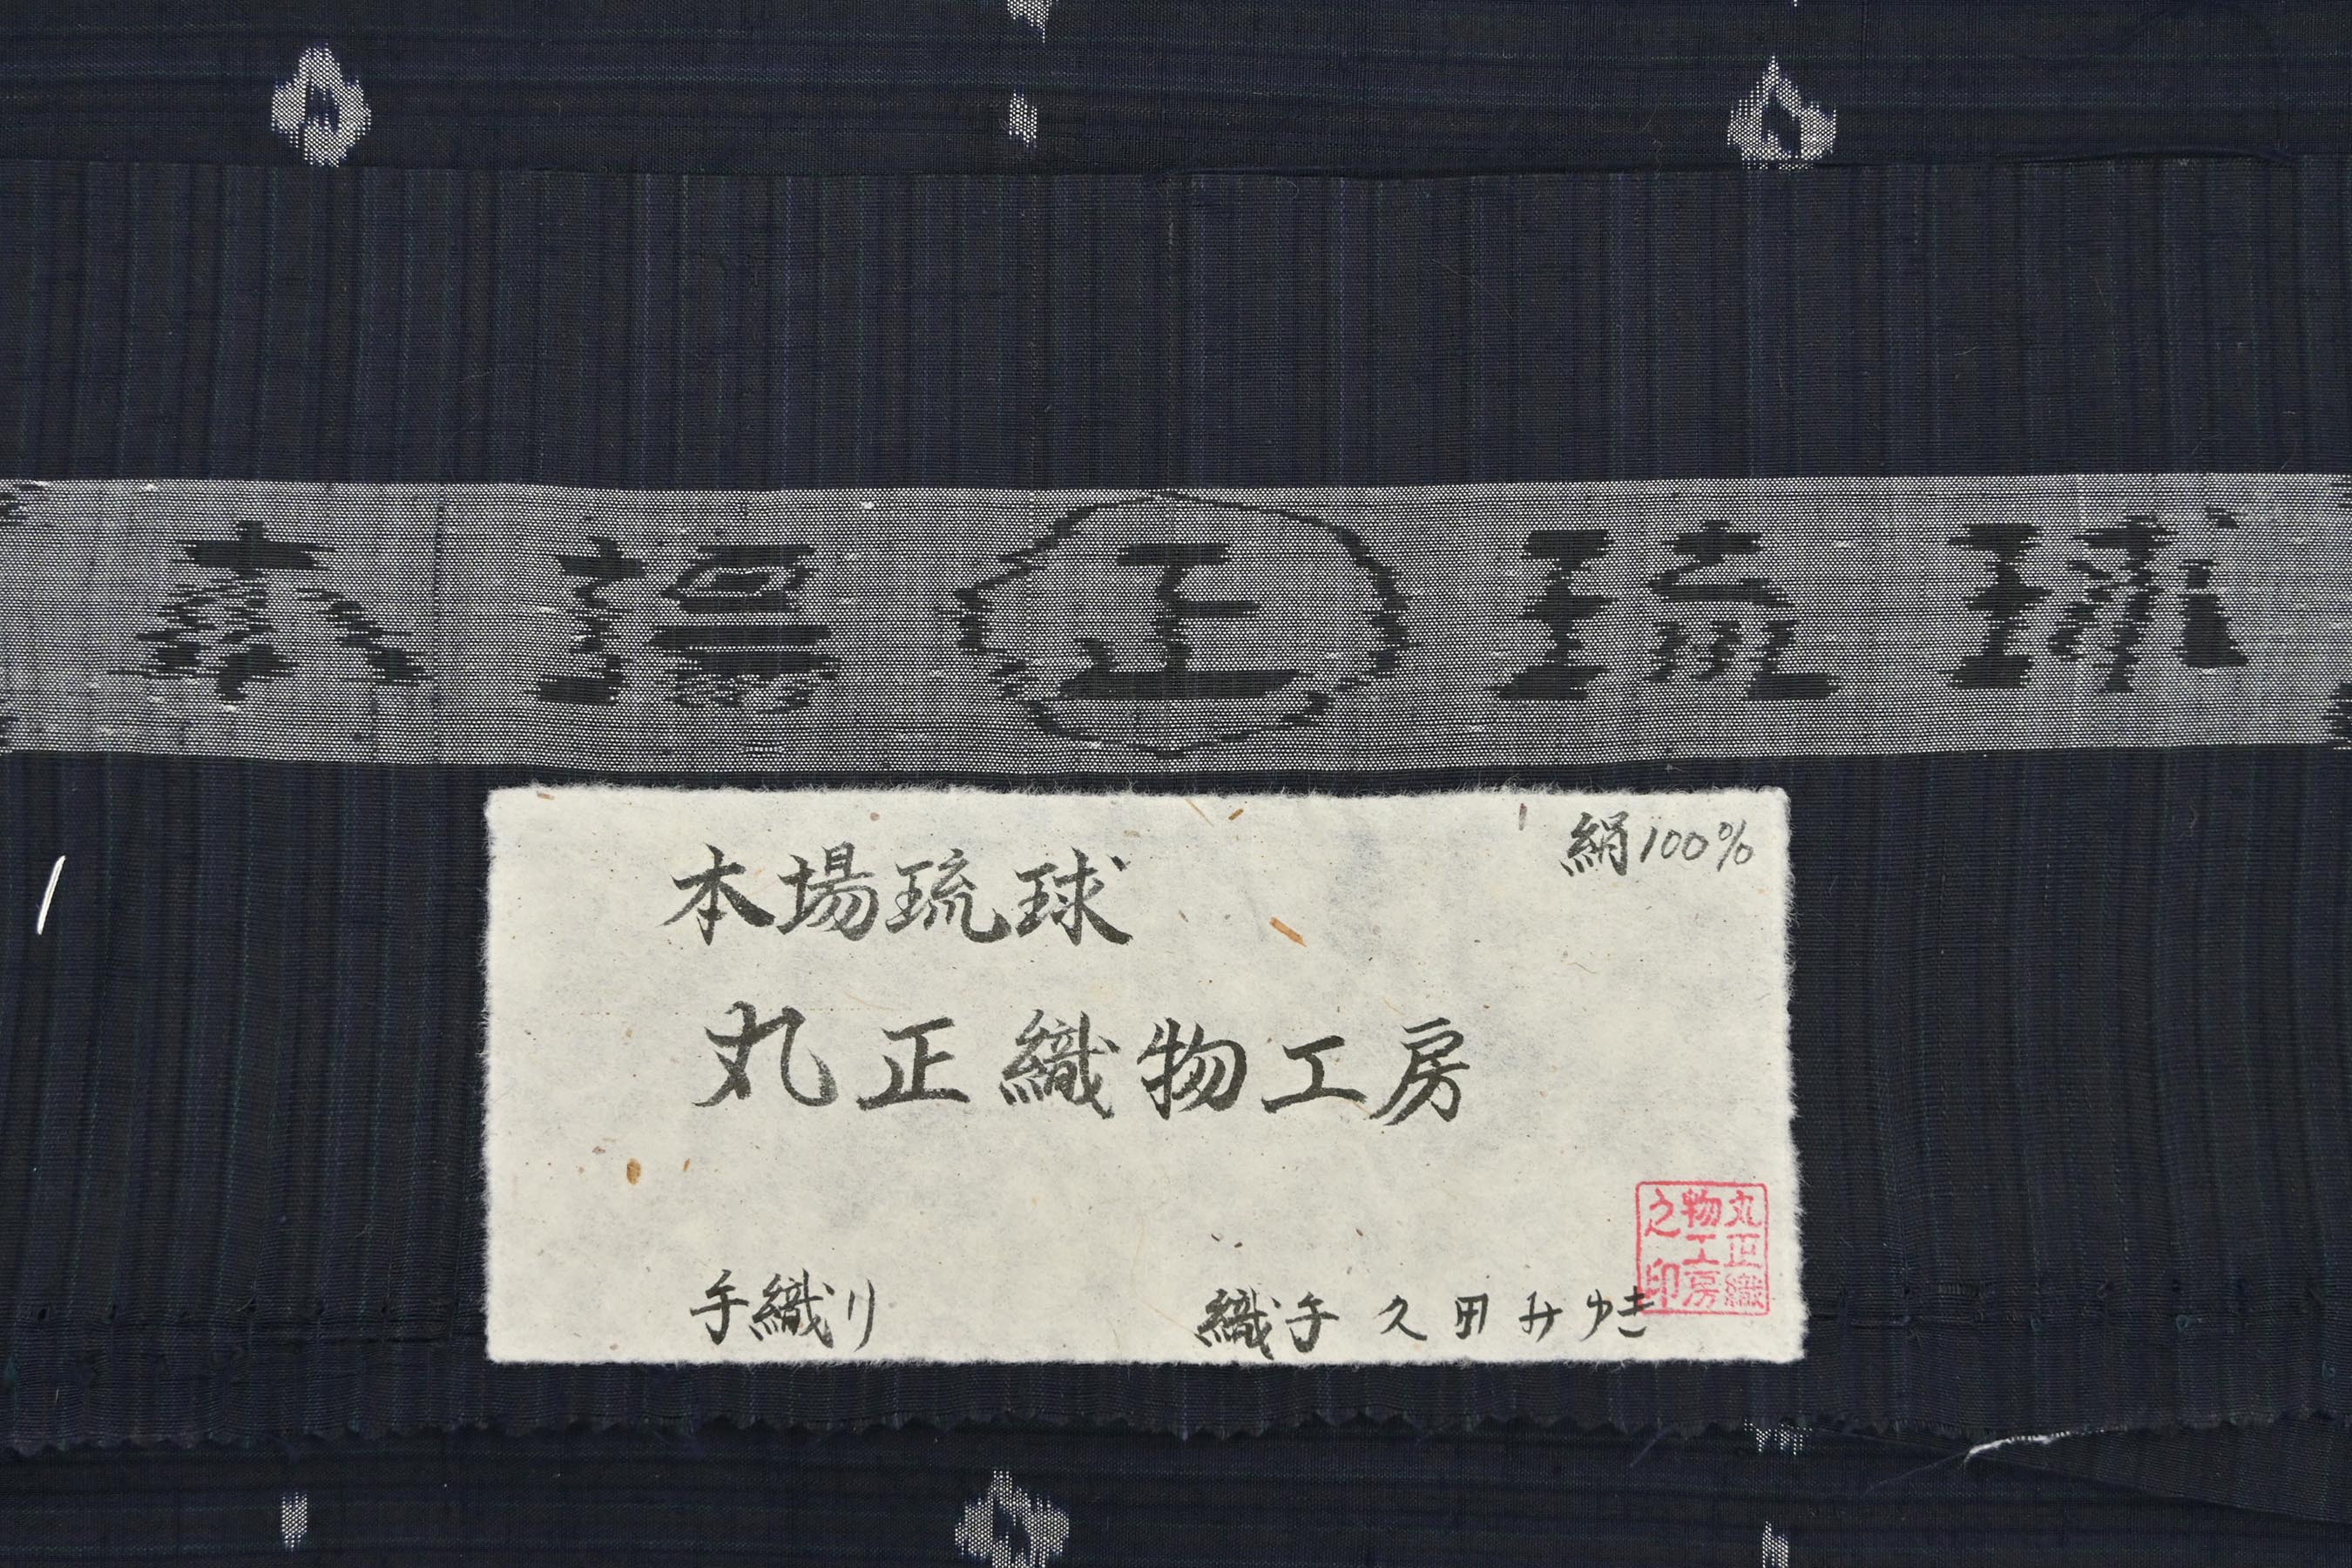 本場㊣琉球
絹100%
本場琉球
丸正織物工房
手織り
織手 久田みゆき
丸正織
物工房
之印